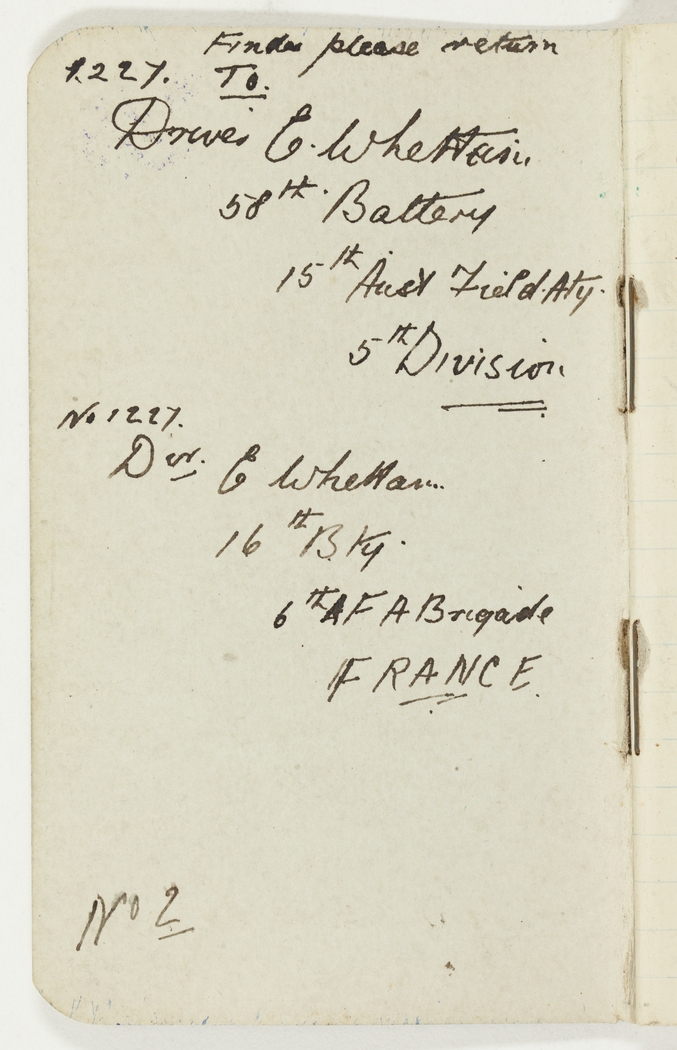 Finder please return
1227. To.
Driver E. Whettam
58th. Battery
15th Aust Field Aty.
5th Division
No 1227.
Dvr. E Whettam
16th Bty.
6th A F A Brigade
FRANCE.
No 2